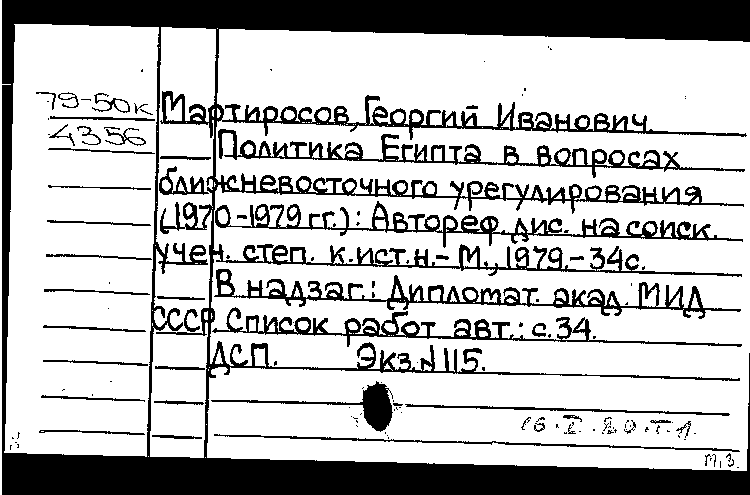 79-50к
4356
Мартиросов, Георгий Иванович.
Политика Египта в вопросах
ближневосточного урегулирования
(1970-1979 гг.): Автореф. дис. на соиск.
учен. степ. к.ист.н.- М., 1979.- 34с.
В надзаг.: Дипломат. акад. МИД
СССР. Список работ авт.: с.34.
ДСП. Экз.N115.
16.I.80.Т.Л.
М.З.